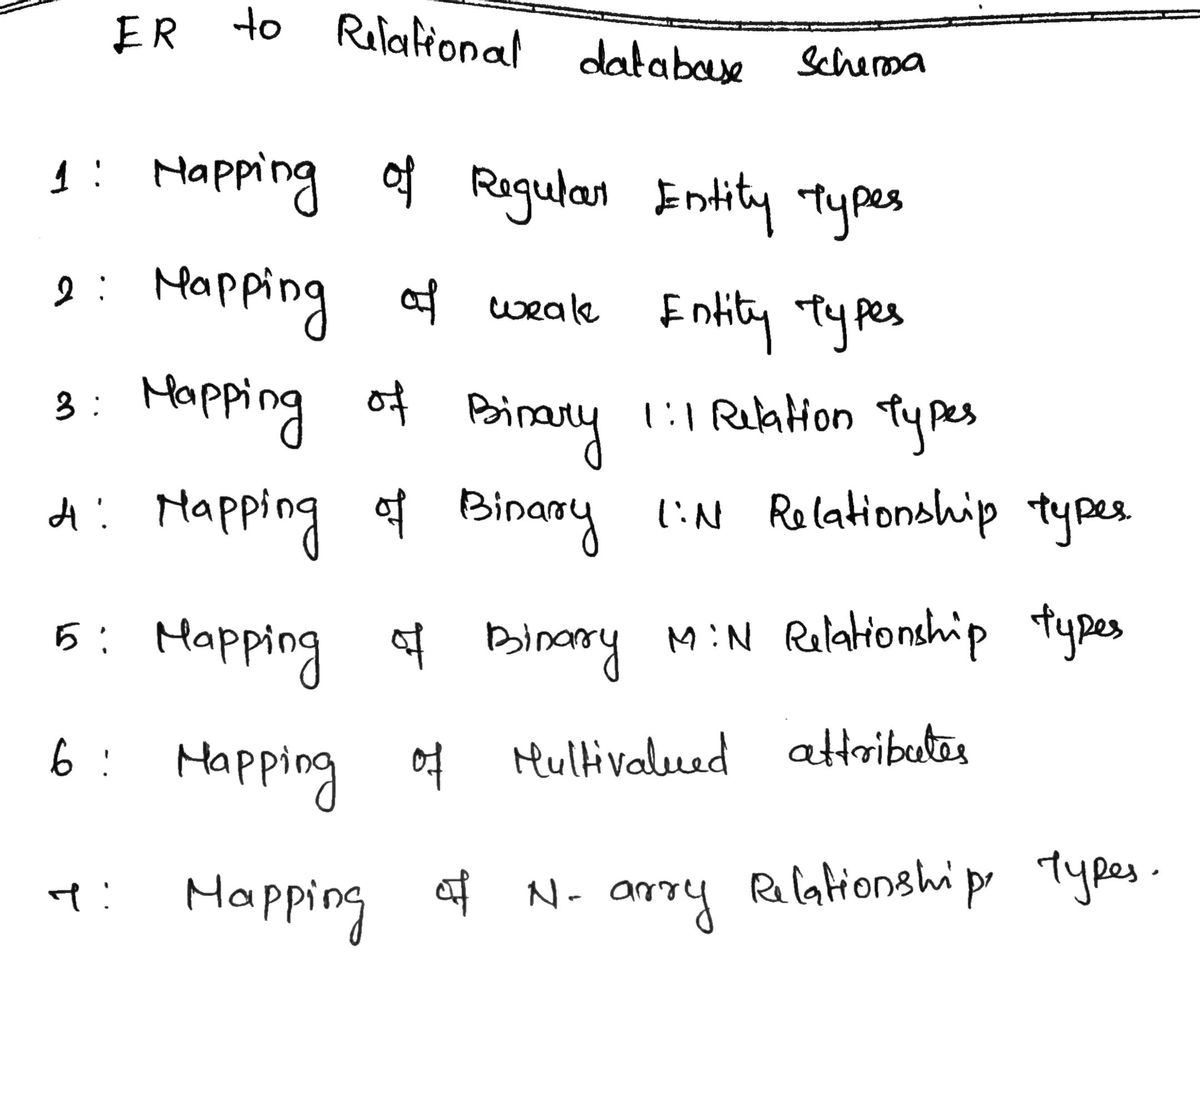 ER to Relational database Schema
1: Mapping of Regular Entity Types
2: Mapping of weak Entity Types
3: Mapping of Binary 1:1 Relation Types
4: Mapping of Binary 1:N Relationship types.
5: Mapping of Binary M:N Relationship types
6: Mapping of Multivalued attributes
7: Mapping of N-arry Relationship Types.